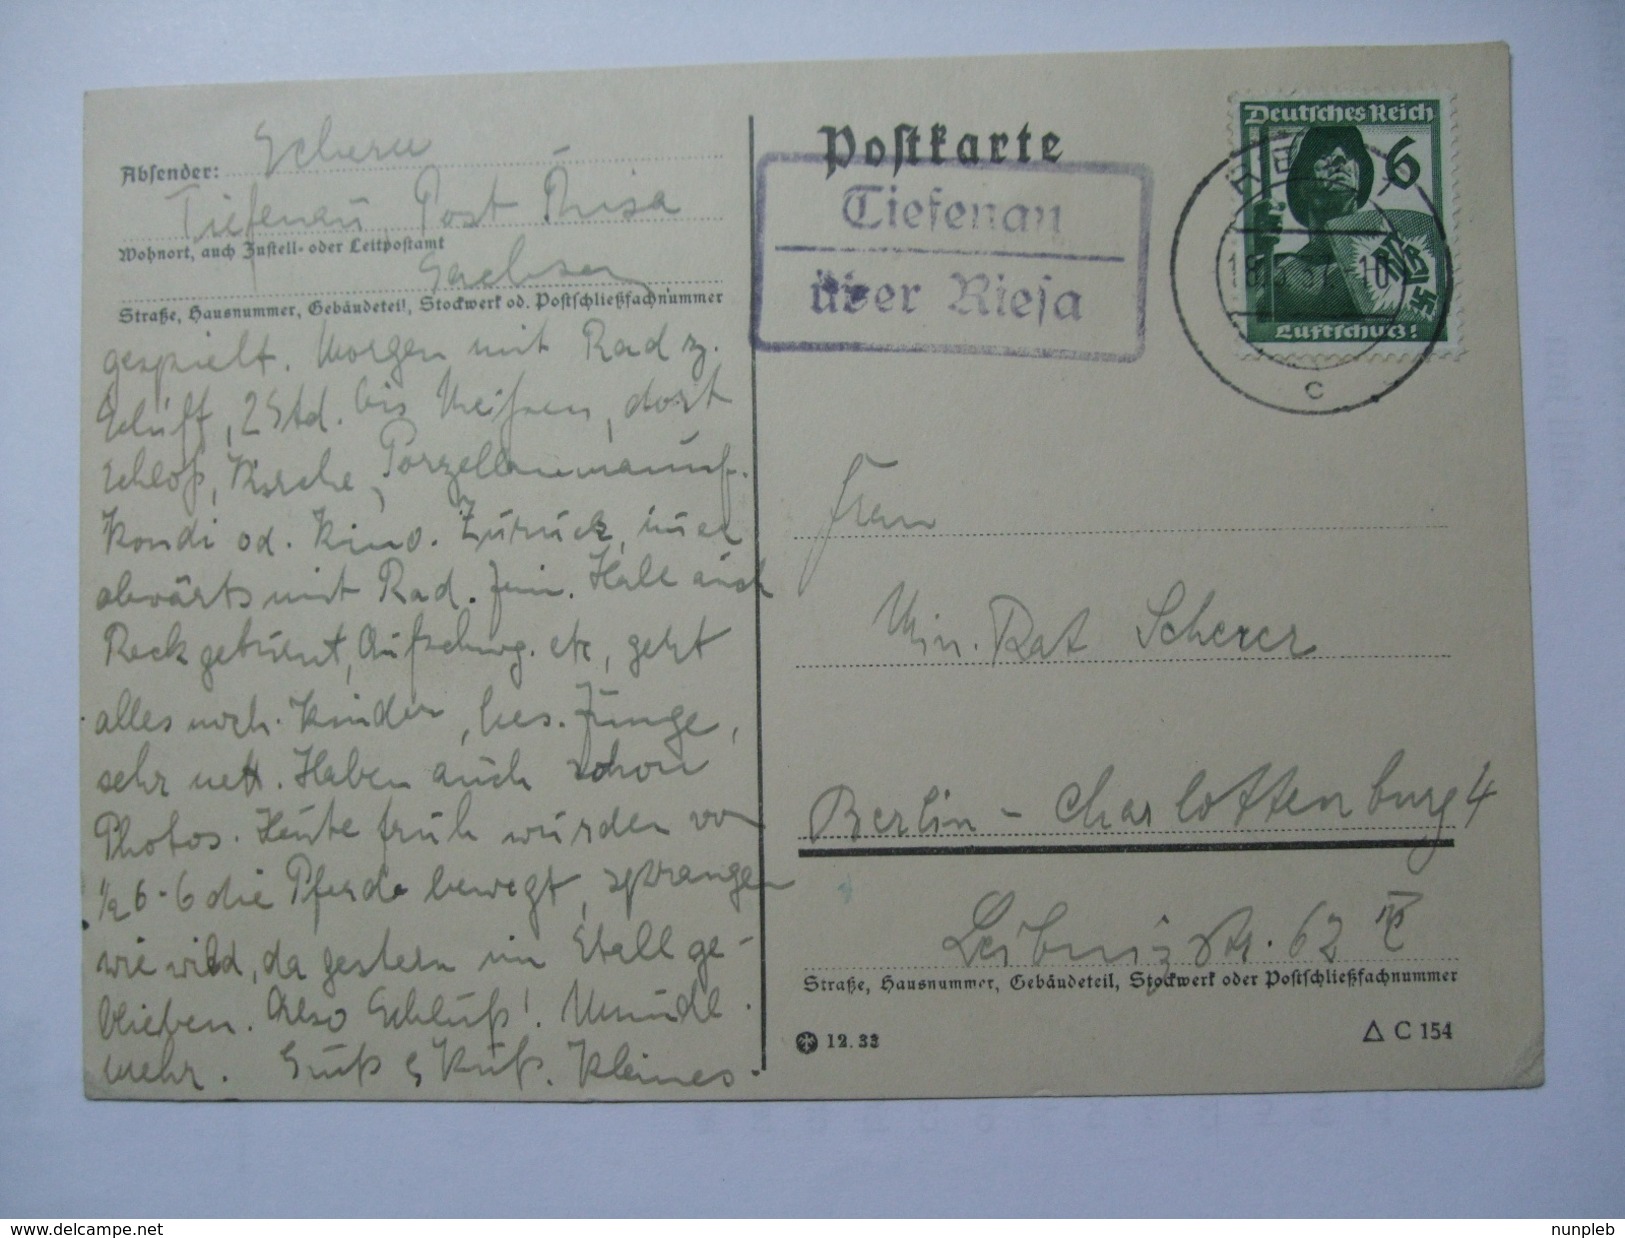 Absender: Scherer
Tiefenau, Post Riesa
Wohnort, auch Zustell- oder Leitpostamt
Sachsen
Straße, Hausnummer, Gebäudeteil, Stockwerk od. Postschließfachnummer
gespielt. Morgen mit Rad z.
Schiff, 2 Std. bis Meißen, dort
Schloß, Kirche, Porzellanmanuf.
Kondi od. Kino. Zurück,
abwärts mit Rad. Halle auch
Reck geturnt, Aufschwg. etc, geht
alles noch. Kinder, bes. Junge,
sehr nett. Haben auch schon
Photos. Heute früh wurden von
½ 6-6 die Pferde bewegt, sprangen
wie wild, da gestern im Stall ge-
blieben. Also Schluß! Mündl.
mehr. Gruß & Kuß. Kleines.
Postkarte
Tiefenau
über Riesa
Deutsches Reich
6
RLB
Luftschutz!
RIESA
18.3.37. 10
c
Frau
Min. Rat Scherer
Berlin - Charlottenburg 4
Leibnizstr. 62 IV
Straße, Hausnummer, Gebäudeteil, Stockwerk oder Postschließfachnummer
12. 33
△ C 154
www.delcampe.net
nunpleb